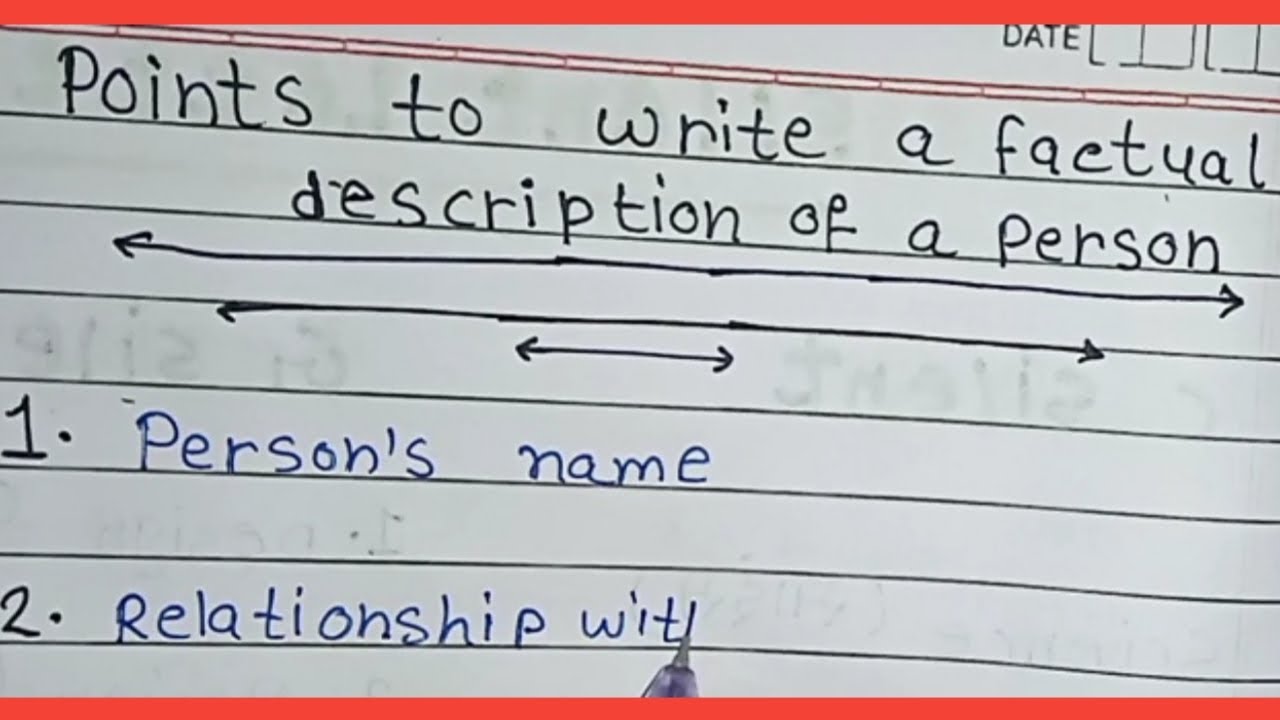 DATE
Points to write a factual
description of a person
1. Person's name
2. Relationship wit